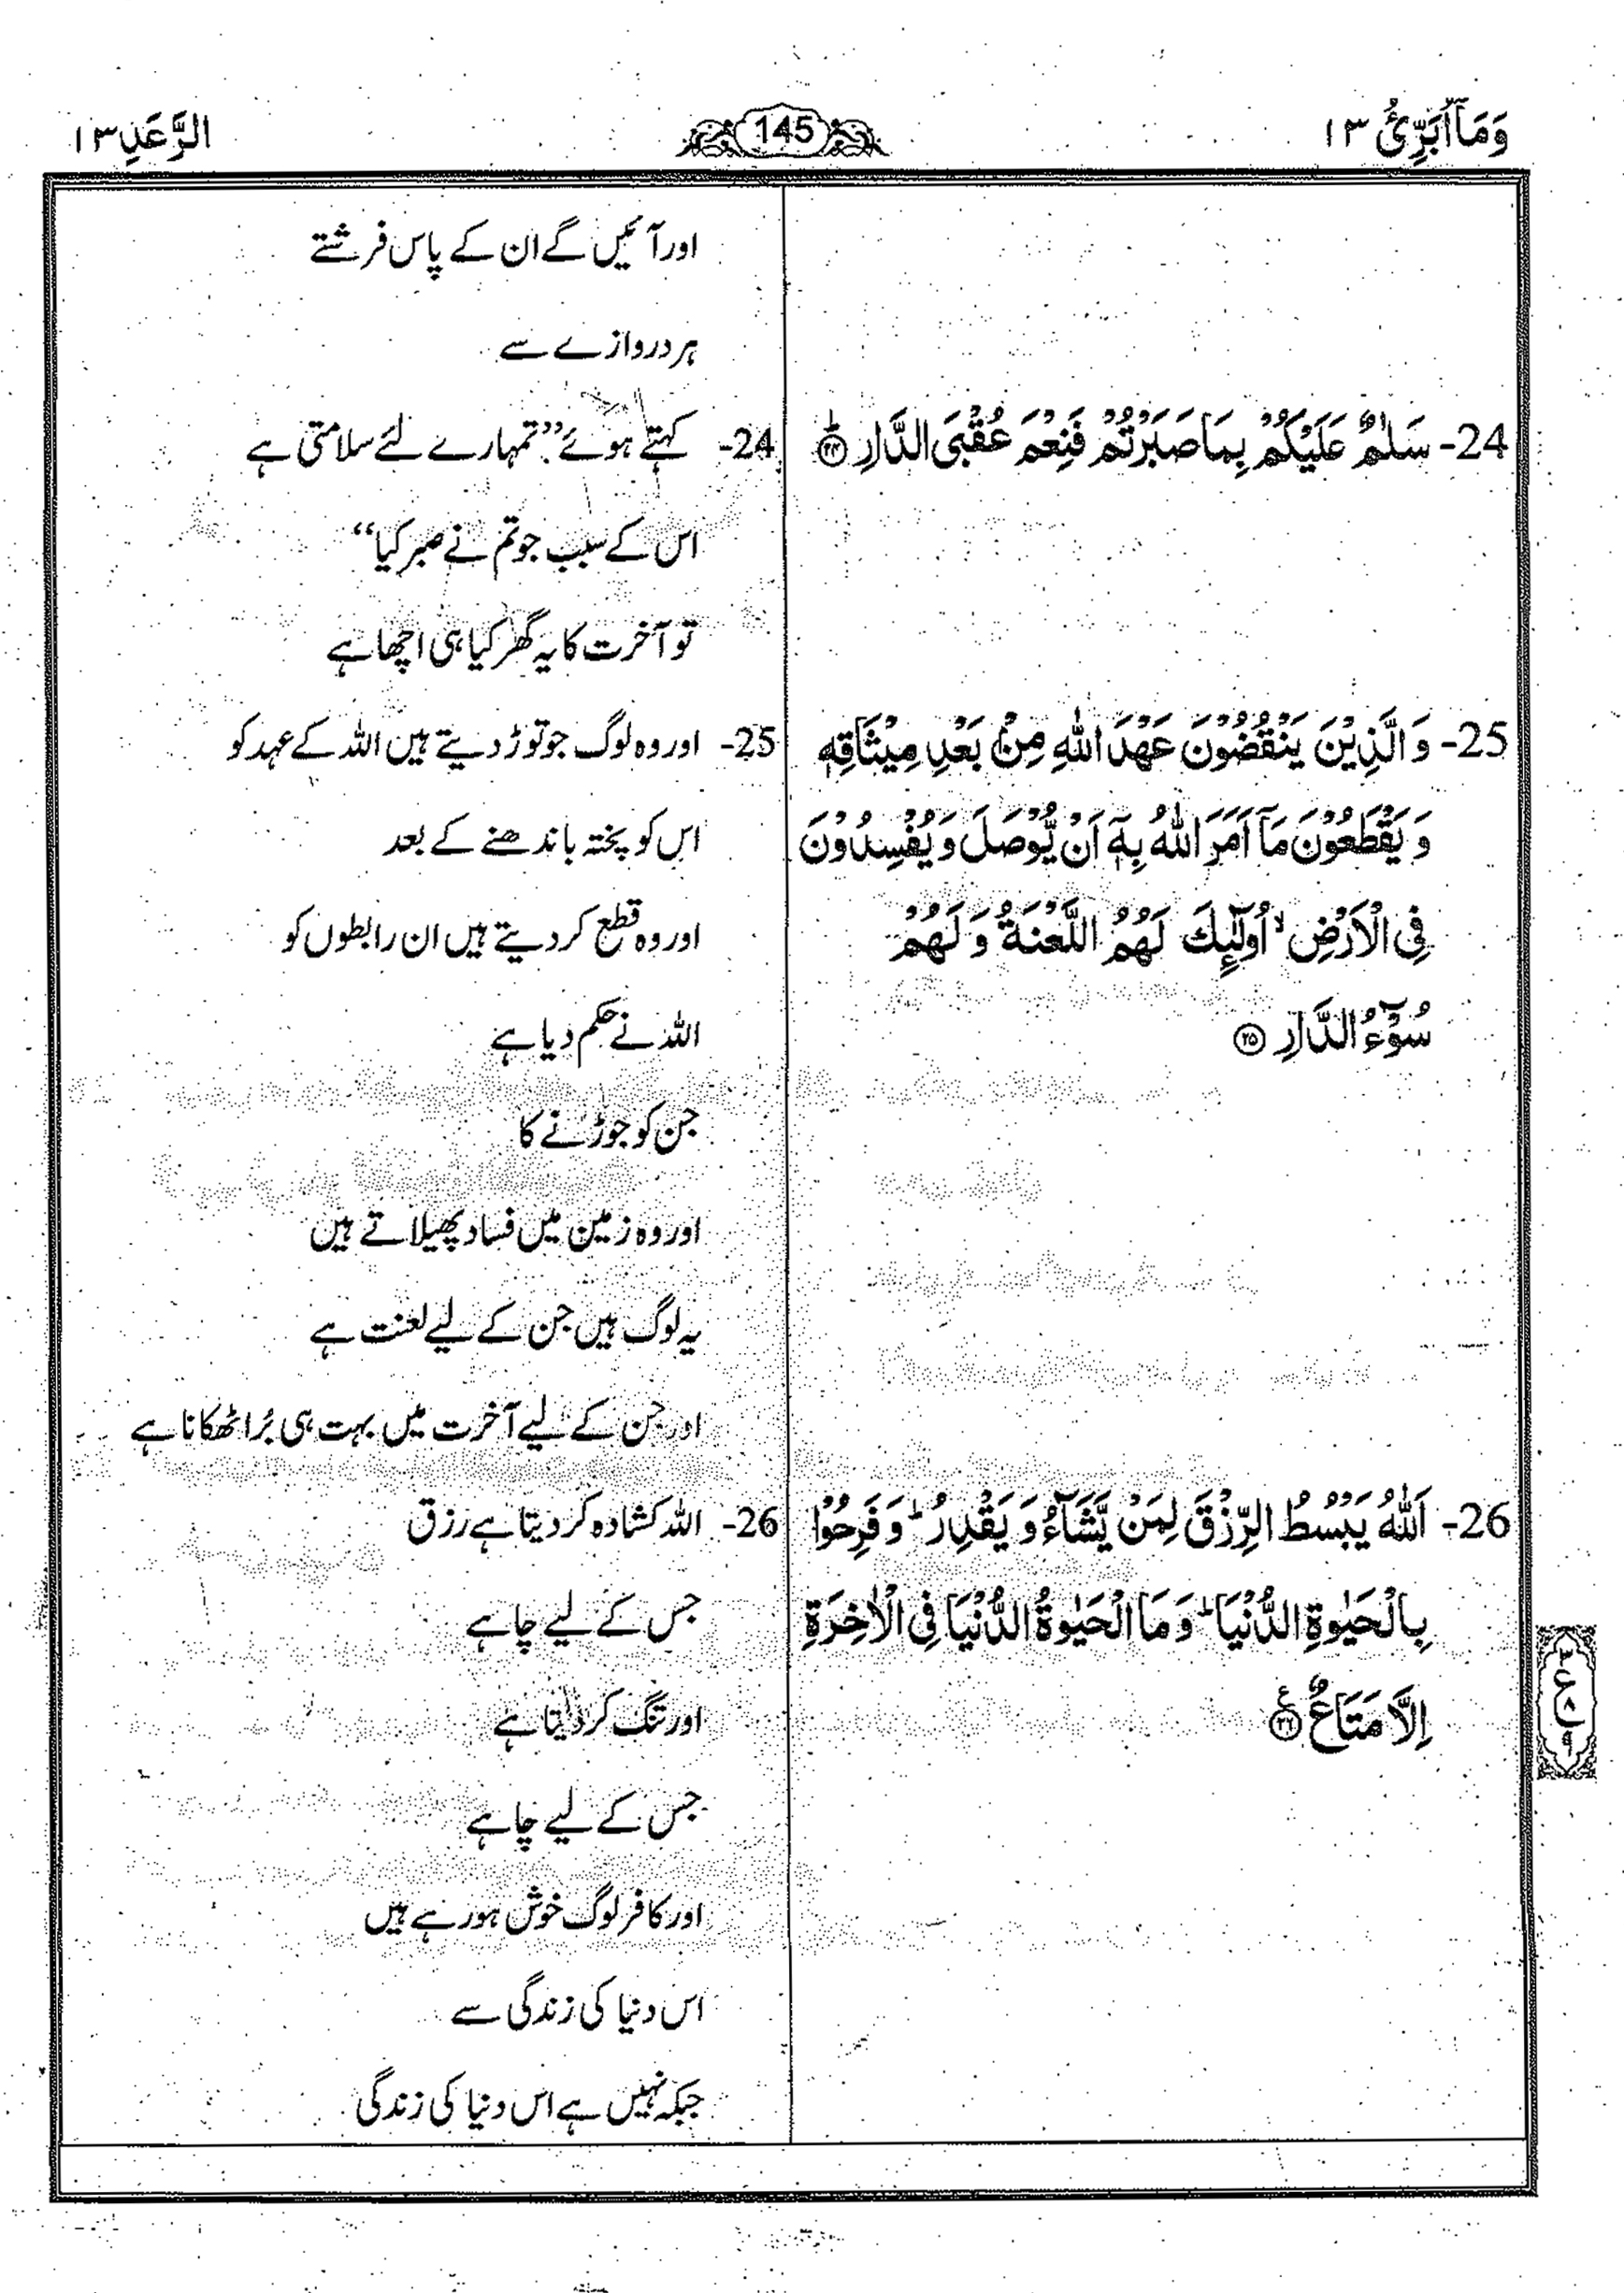 وَمَاۤ اُبَرِّئُ ۱۳
145
الرَّعَدِ ۱۳
اور آئیں گے ان کے پاس فرشتے
ہر دروازے سے
24- سَلٰمٌ عَلَیْكُمْ بِمَا صَبَرْتُمْ فَنِعْمَ عُقْبَى الدَّارِ ؕ﴿۲۴﴾
24- کہتے ہوئے ”تمہارے لئے سلامتی ہے
اس کے سبب جو تم نے صبر کیا“
تو آخرت کا یہ گھر کیا ہی اچھا ہے
25- وَ الَّذِیْنَ یَنْقُضُوْنَ عَهْدَ اللّٰهِ مِنْۢ بَعْدِ مِیْثَاقِهٖ
وَ یَقْطَعُوْنَ مَاۤ اَمَرَ اللّٰهُ بِهٖۤ اَنْ یُّوْصَلَ وَ یُفْسِدُوْنَ
فِی الْاَرْضِ ۙ اُولٰٓىِٕكَ لَهُمُ اللَّعْنَةُ وَ لَهُمْ
سُوْٓءُ الدَّارِ ﴿۲۵﴾
25- اور وہ لوگ جو توڑ دیتے ہیں اللہ کے عہد کو
اس کو پختہ باندھنے کے بعد
اور وہ قطع کر دیتے ہیں ان رابطوں کو
اللہ نے حکم دیا ہے
جن کو جوڑنے کا
اور وہ زمین میں فساد پھیلاتے ہیں
یہ لوگ ہیں جن کے لیے لعنت ہے
اور جن کے لیے آخرت میں بہت ہی بُرا ٹھکانا ہے
26- اَللّٰهُ یَبْسُطُ الرِّزْقَ لِمَنْ یَّشَآءُ وَ یَقْدِرُ ؕ وَ فَرِحُوْا
بِالْحَیٰوةِ الدُّنْیَا ؕ وَ مَا الْحَیٰوةُ الدُّنْیَا فِی الْاٰخِرَةِ
اِلَّا مَتَاعٌ ﴿۲۶﴾ ع
26- اللہ کشادہ کر دیتا ہے رزق
جس کے لیے چاہے
اور تنگ کر دیتا ہے
جس کے لیے چاہے
اور کافر لوگ خوش ہو رہے ہیں
اس دنیا کی زندگی سے
جبکہ نہیں ہے اس دنیا کی زندگی